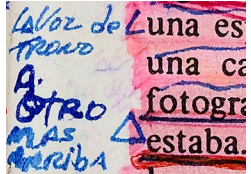 LA VOZ de
TRONO
A.
OTRO
MAS
ARRIBA
una es
una ca
fotogra
estaba.